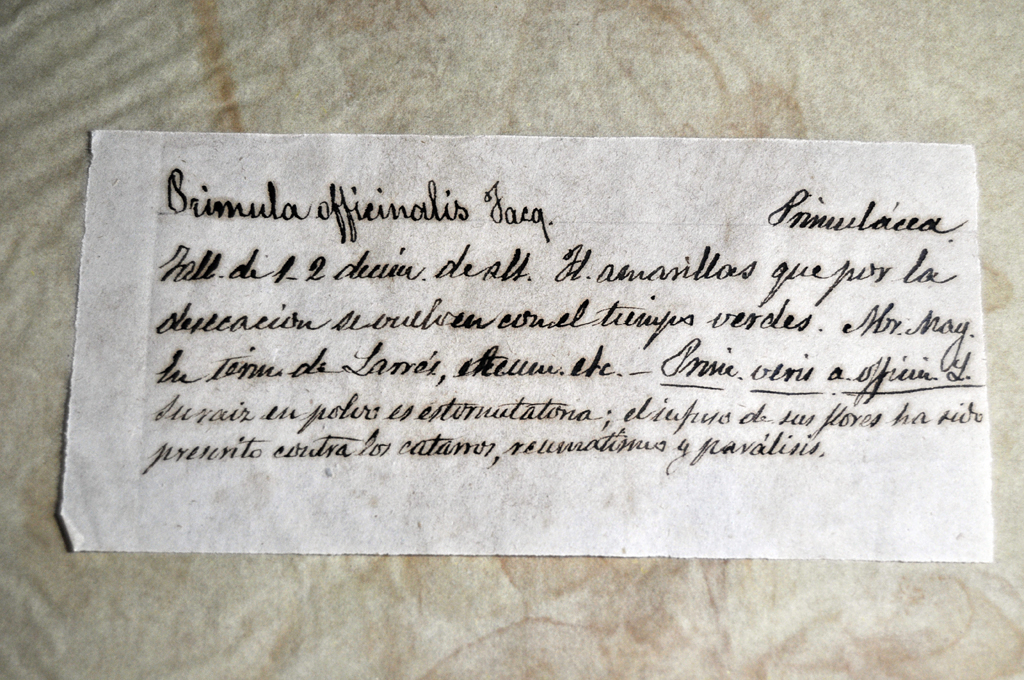 Primula officinalis Jacq. Primulácea
Tall. de 1-2 decím. de alt. Fl. amarillas que por la
desecacion se vuelven con el tiempo verdes. Abr. May.
En térm. de Larrés, etc. — Prim. veris a. officin. L.
Su raiz en polvo es estornutatoria; el infuso de sus flores ha sido
prescrito contra los catarros, reumatismo y parálisis.